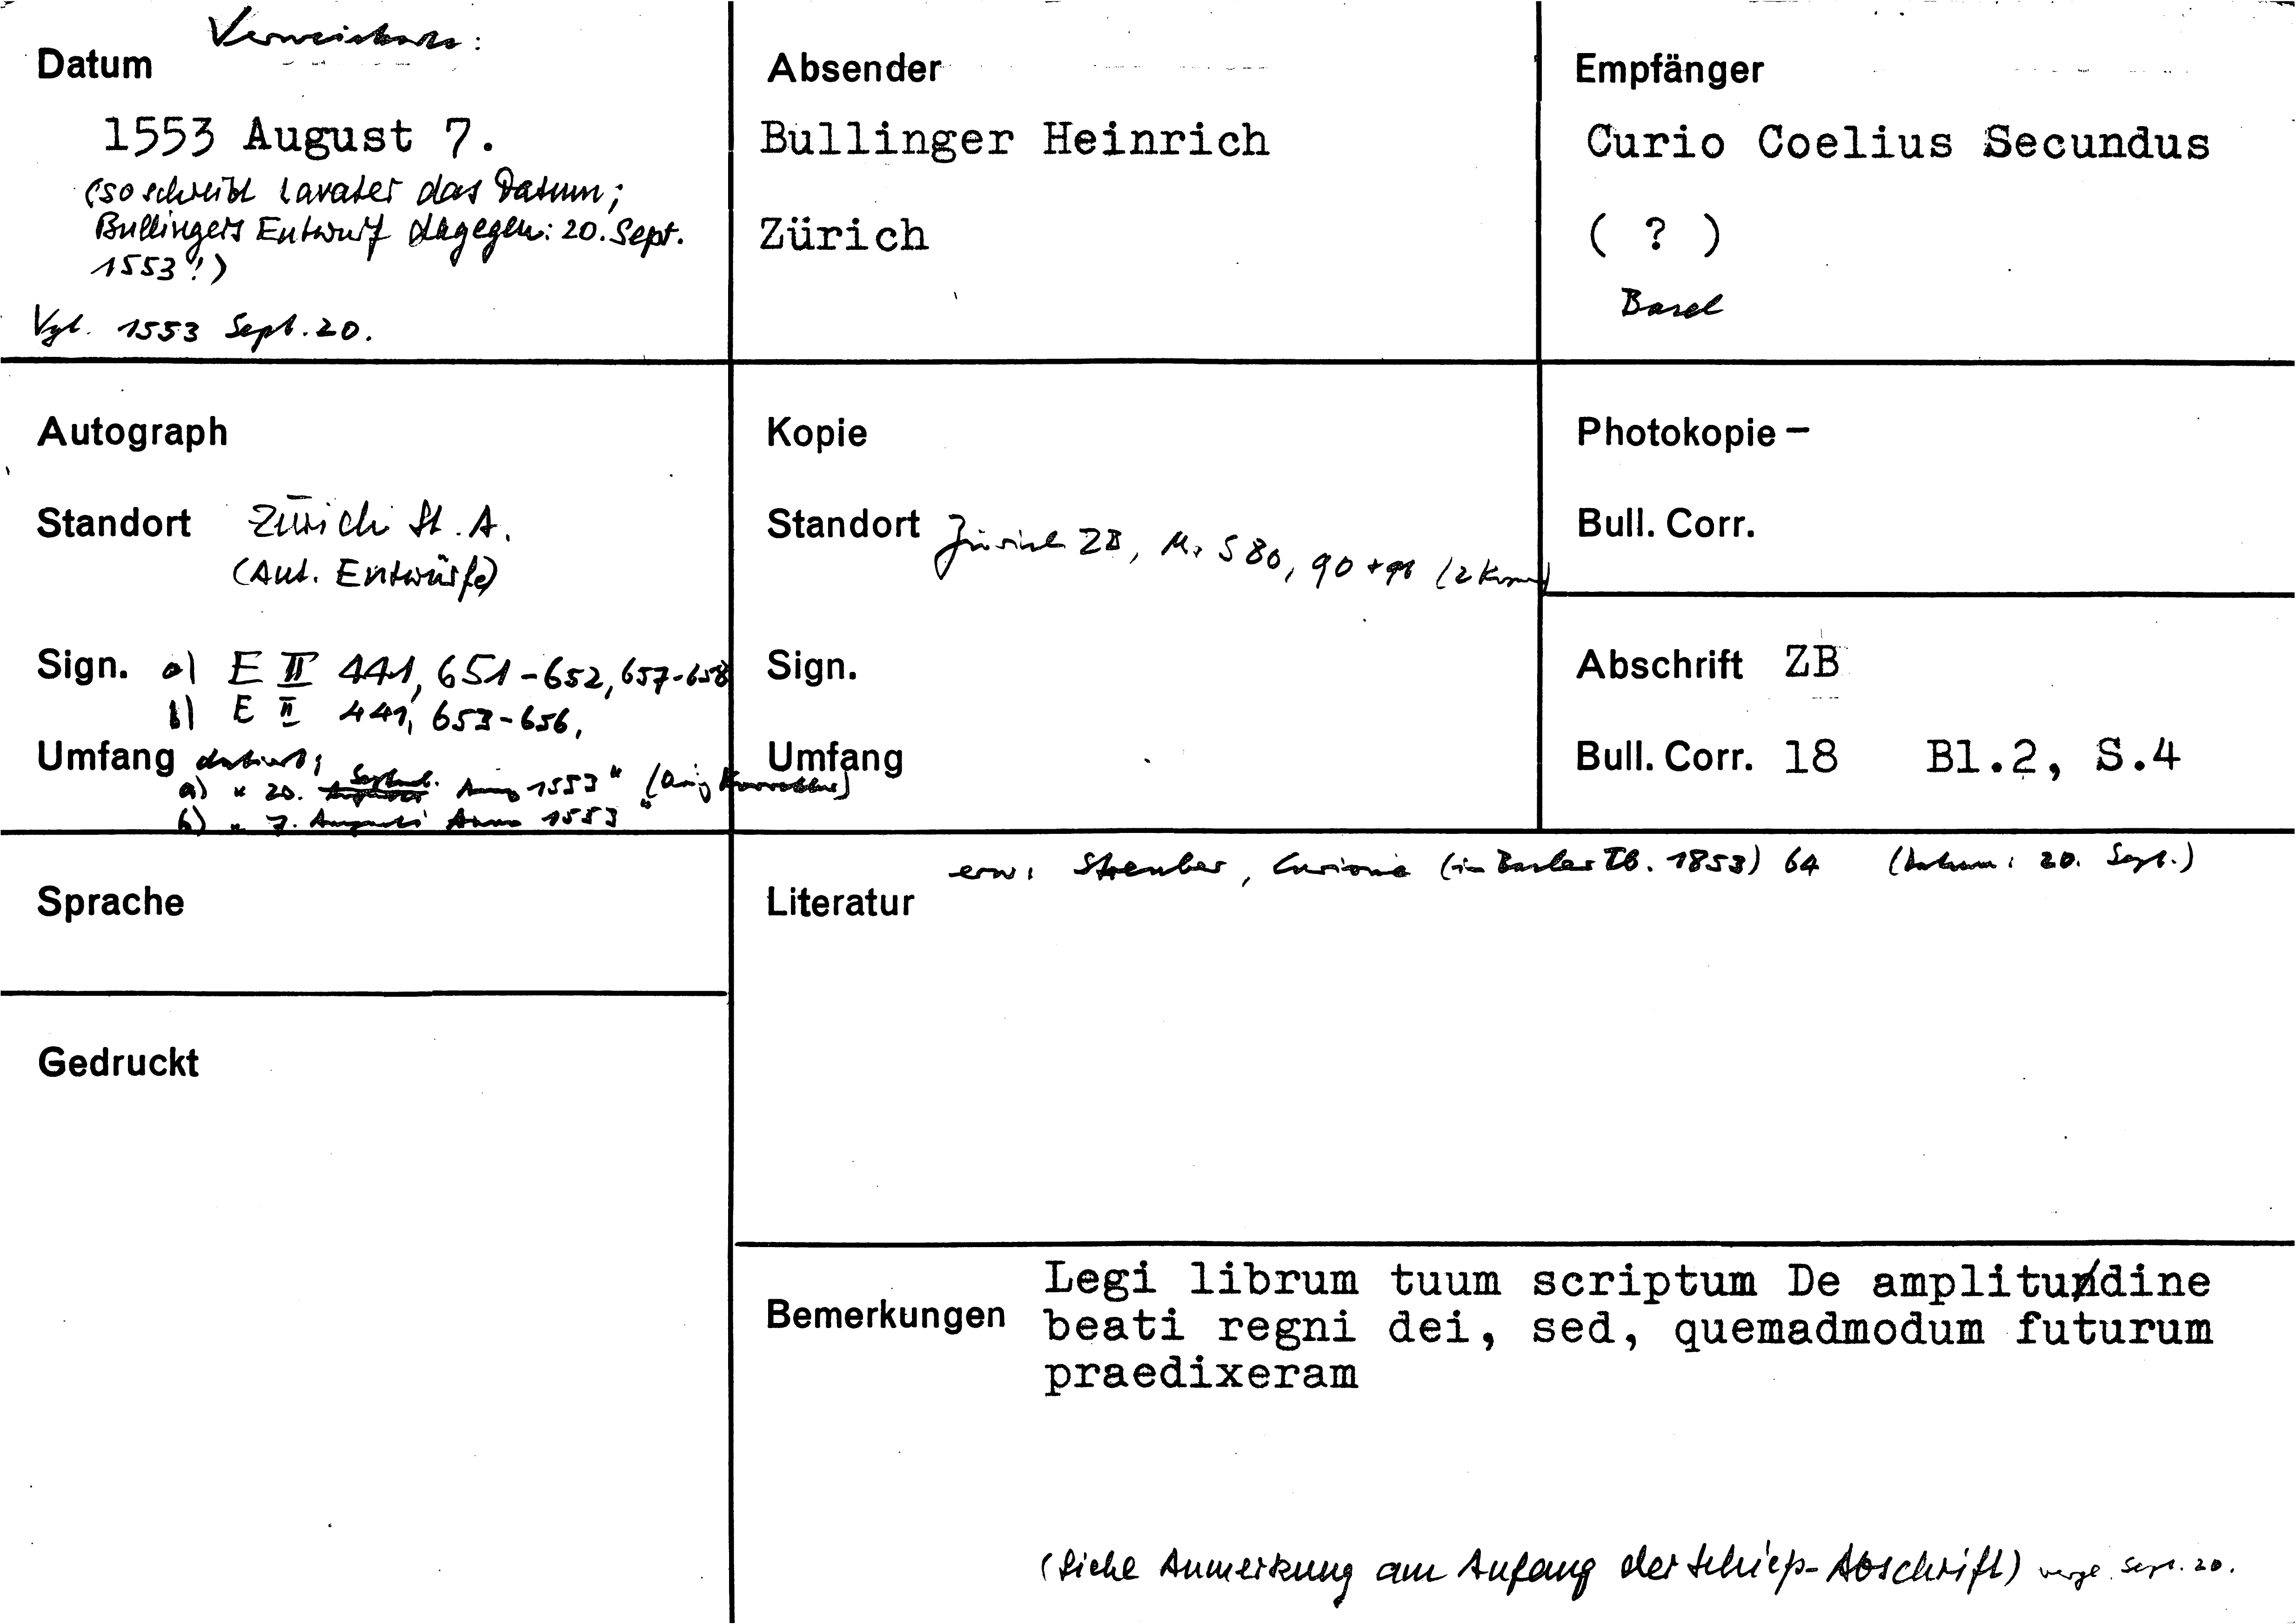 Verweiskarte:
Datum
1553 August 7.
(so schreibt Lavater das Datum;
Bullingers Entwurf dagegen: 20. Sept.
1553!)
Vgl. 1553 Sept. 20.
Absender
Bullinger Heinrich
Zürich
Empfänger
Curio Coelius Secundus
( ? )
Basel
Autograph
Standort Zürich St. A.
(Aut. Entwürfe)
Sign. a) E II 441, 651-652, 657-658
b) E II 441, 653-656,
Umfang datiert:
a) "20. Septemb. Anno 1553" (Orig Korrektur)
b) "7. Augusti Anno 1553"
Kopie
Standort Zürich ZB, Ms S 80, 90 + 91
Sign.
Umfang
Photokopie -
Bull. Corr.
Abschrift ZB
Bull. Corr. 18 Bl.2, S.4
Sprache
Gedruckt
Literatur erw: Streuber, Curioni (in Basler TB. 1853) 64 (Datum: 20. Sept.)
Bemerkungen
Legi librum tuum scriptum De amplitudine
beati regni dei, sed, quemadmodum futurum
praedixeram
(Siehe Anmerkung am Anfang der Schieß-Abschrift) vergl. Sept. 20.